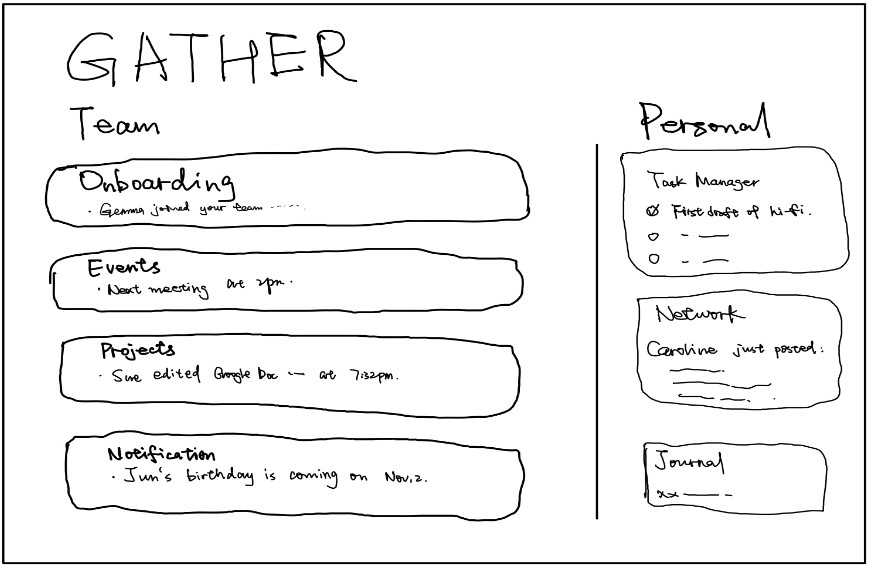 GATHER
Team
Onboarding
· Gemma joined your team ......
Events
· Next meeting at 2pm.
Projects
· Sue edited Google Doc -- at 7:32pm.
Notification
· Jun's birthday is coming on Nov.2.
Personal
Task Manager
First draft of hi-fi.
Network
Caroline just posted:
Journal
xx